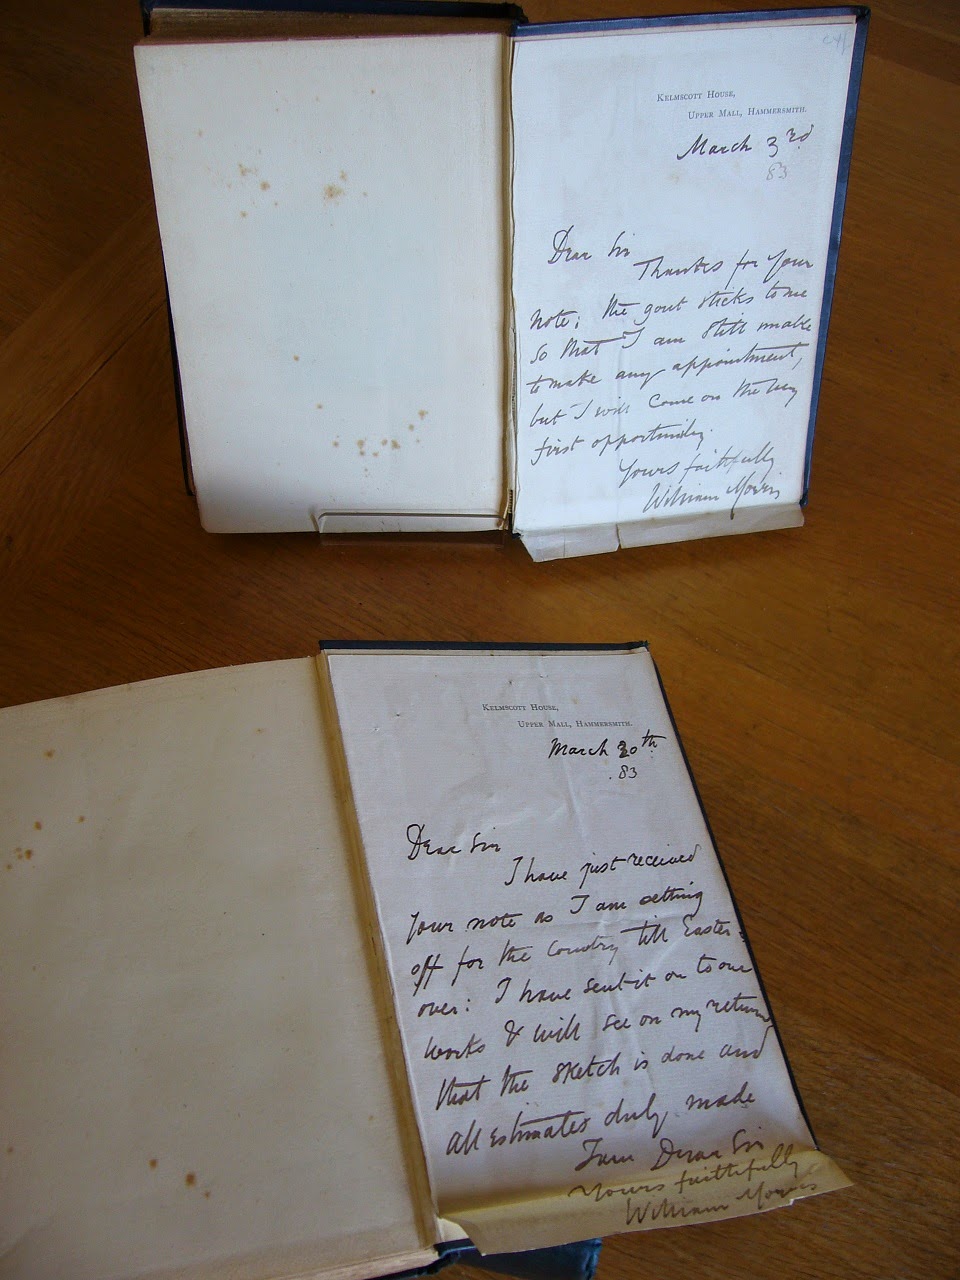 KELMSCOTT HOUSE,
UPPER MALL, HAMMERSMITH.
March 3rd
83
Dear Sir
Thanks for your
note; the gout sticks to me
so that I am still unable
to make any appointment,
but I will come on the very
first opportunity.
Yours faithfully
William Morris
KELMSCOTT HOUSE,
UPPER MALL, HAMMERSMITH.
March 20th
.83
Dear Sir
I have just received
your note as I am setting
off for the country till Easter
over: I have sent it on to our
works & will see on my return
that the sketch is done and
all estimates duly made
I am Dear Sir
Yours faithfully
William Morris